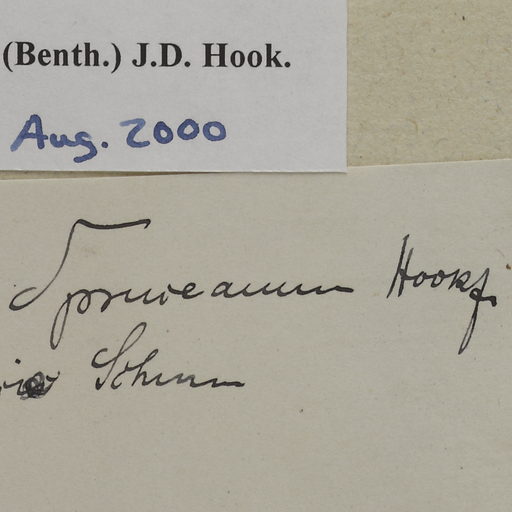 (Benth.) J.D. Hook.
Aug. 2000
Spruceanum Hookf.
Schum